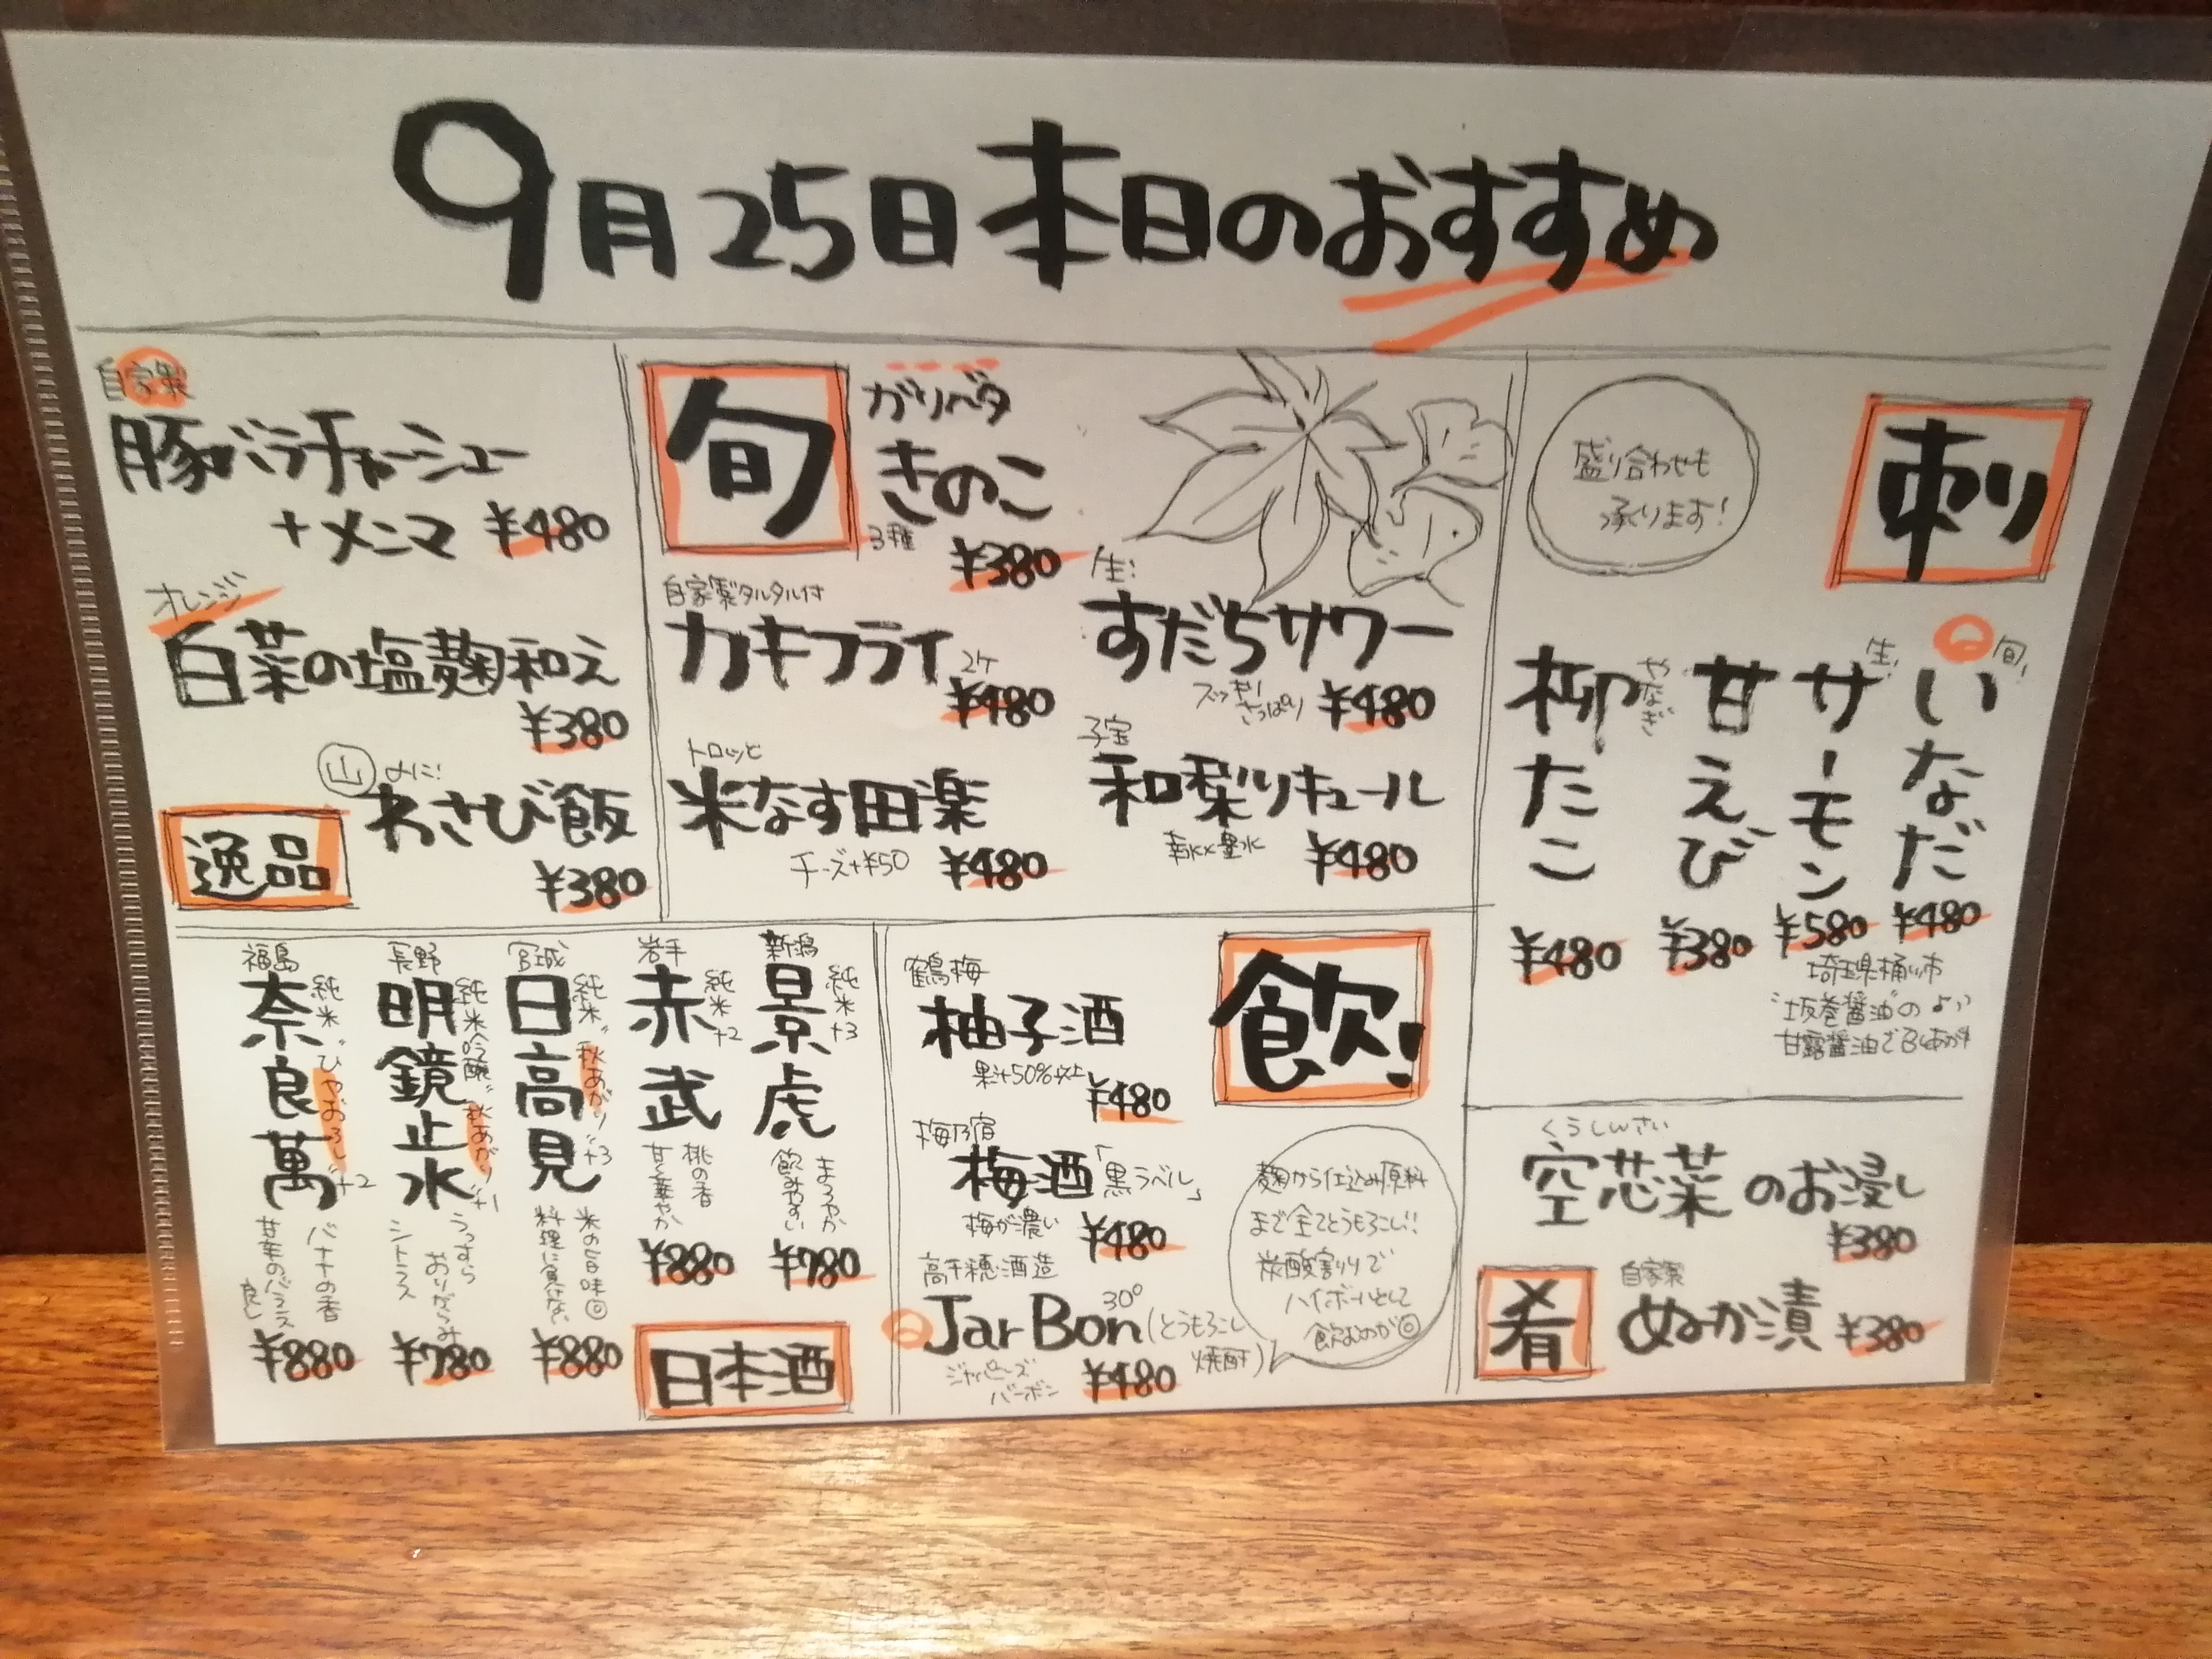 9月25日本日のおすすめ
自家製
豚バラチャーシュー
+メンマ ¥480
オレンジ
白菜の塩麹和え
¥380
山 〆に!
わさび飯
¥380
逸品
旬
ガリバタ
きのこ
3種 ¥380
自家製タルタル付
カキフライ
2ケ
¥480
トロッと
米なす田楽
チーズ+¥50 ¥480
生!
すだちサワー
スッキリ
さっぱり ¥480
子宝
和梨リキュール
幸水×豊水 ¥480
盛り合わせも
承ります!
刺り
旬!
いなだ
¥480
生!
サーモン
¥580
甘えび
¥380
柳たこ
やなぎ
¥480
埼玉県桶川市
"坂巻醤油"の
甘露醤油で
新潟
景虎
純米+3
まろやか
飲みやすい
¥780
岩手
赤武
純米+2
桃の香
甘く華やか
¥880
宮城
日高見
純米"秋あがり"+3
米の旨味◎
料理に負けない
¥880
長野
明鏡止水
純米吟醸"秋あがり"+1
うっすら
おりがらみ
シトラス
¥780
福島
奈良萬
純米"ひやおろし"+2
バナナの香
甘辛のバランス
良し
¥880
日本酒
飲!
鶴梅
柚子酒
果汁50%以上 ¥480
梅乃宿
梅酒「黒ラベル」
梅が濃い ¥480
高千穂酒造
Jar Bon 30° (とうもろこし
焼酎)
ジャパニーズ
バーボン
¥480
麹から仕込み原料
まで全てとうもろこし!!
炭酸割りで
ハイボールとして
飲むのが◎
くうしんさい
空芯菜のお浸し
¥380
肴
自家製
ぬか漬 ¥380